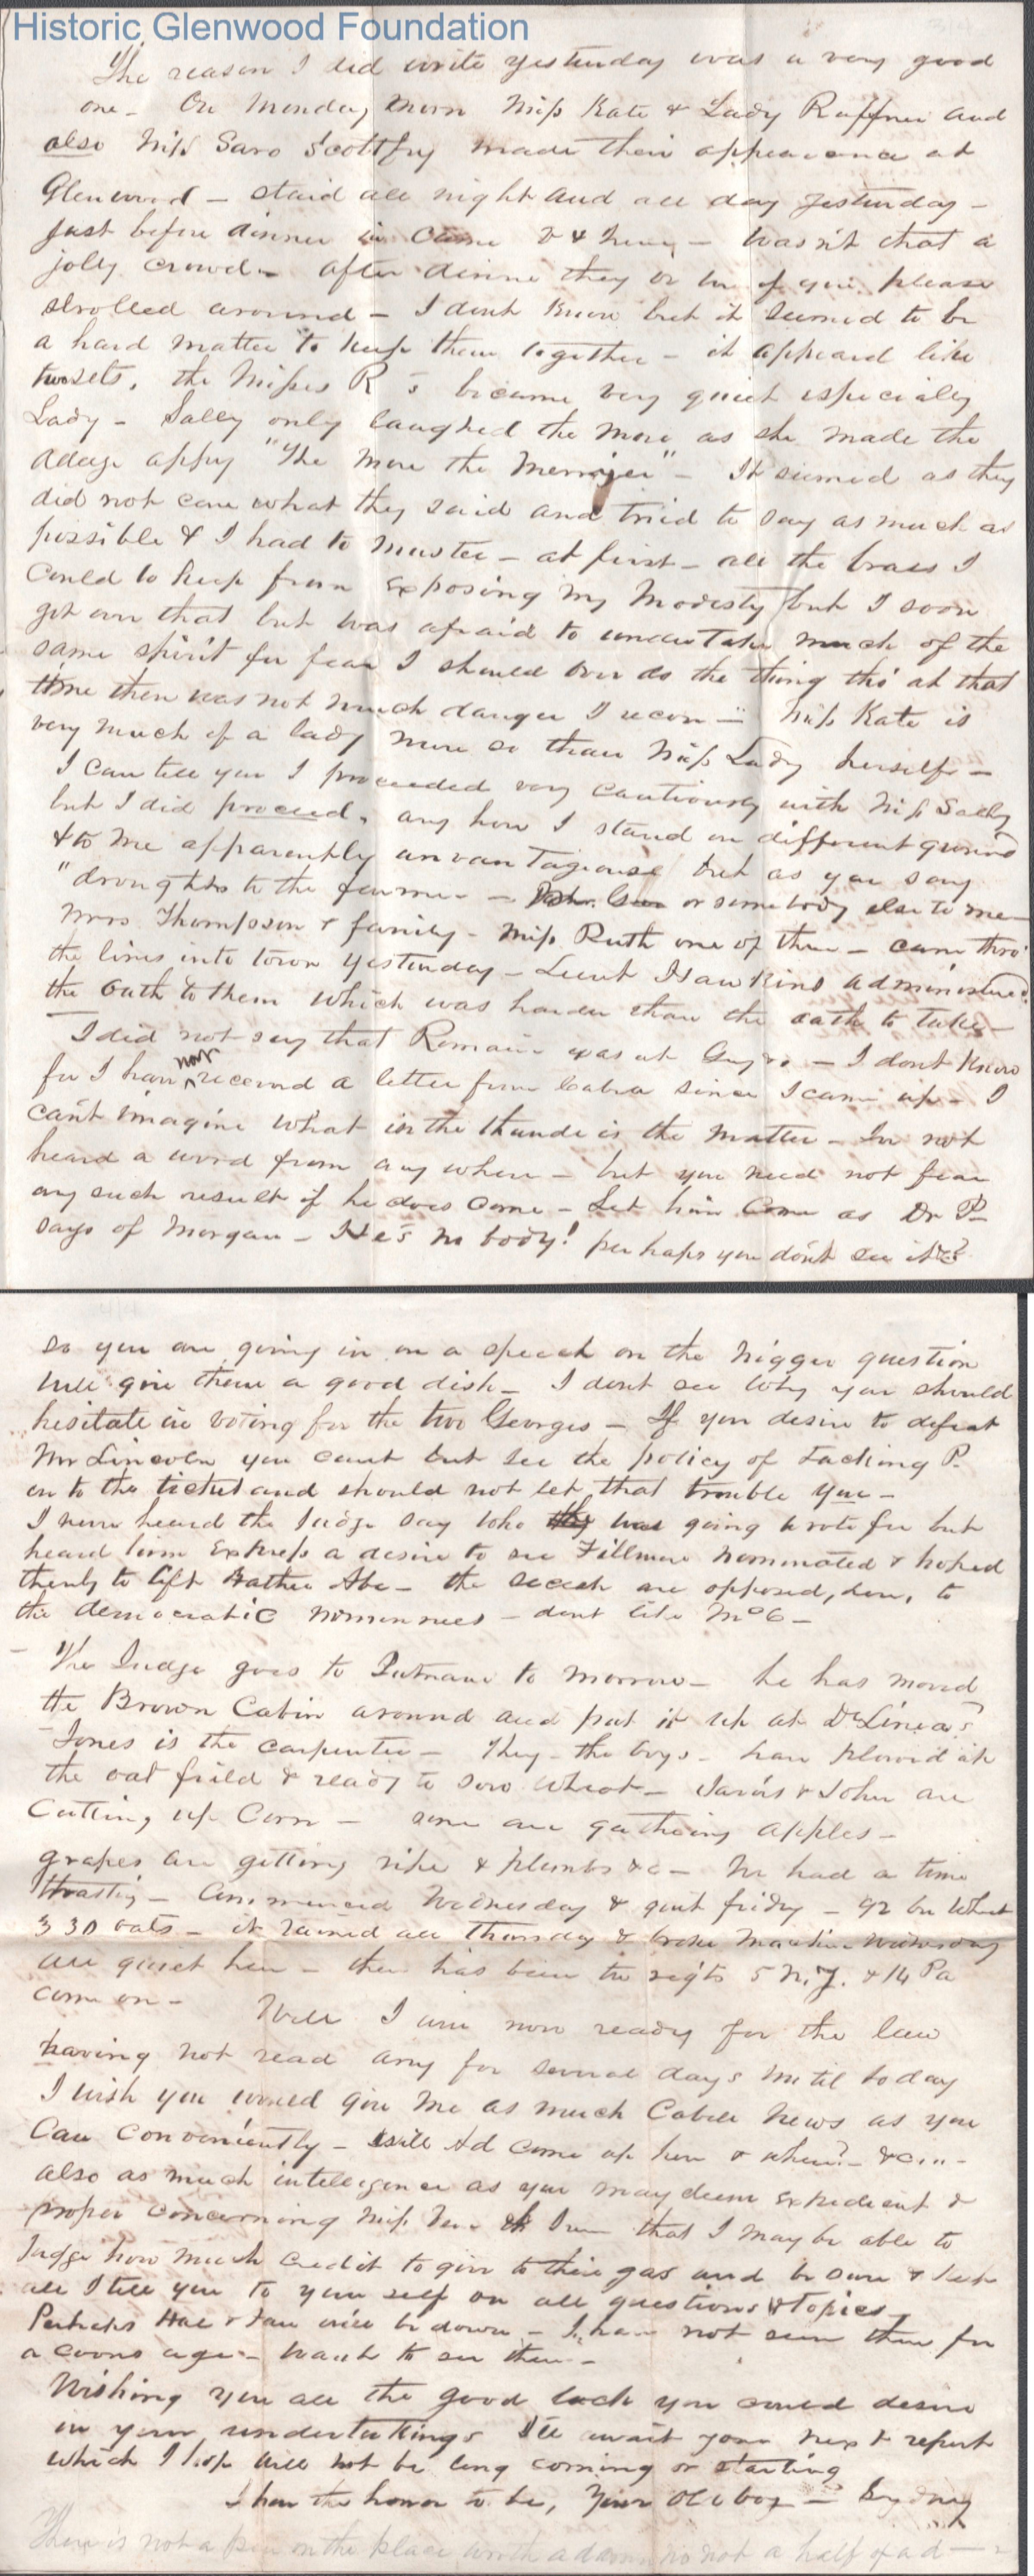 Historic Glenwood Foundation
The reason I did write yesterday was a very good
one - On Monday morn Miss Kate & Lady Ruffner and
also Miss Saro Scottfry made their appearance at
Glenwood - staid all night and all day yesterday -
just before dinner in came & - wasn't that a
jolly crowd - after dinner they or we if you please
strolled around - I dont know but it seemed to be
a hard matter to keep them together - it appeard like
two sets, the Misses R s became very quiet especially
Lady - Sally only laughed the more as she made the
adage apply "The more the merrier" - It seemed as they
did not care what they said and tried to say as much as
possible & I had to muster - at first - all the brass I
could to keep from exposing my modesty but I soon
got over that but was afraid to undertake much of the
same spirit for fear I should over do the thing tho' at that
time there was not much danger I recon - Miss Kate is
very much of a lady more so than Miss Lady herself -
I can tell you I proceeded very cautiously with Miss Sally
but I did proceed, any how I stand on different ground
& to me apparently advantageous but as you say
"droughts to the farmer - or some body else to me -
Mrs Thompson & family - Miss Ruth one of them - came thro'
the lines into town yesterday - Lieut Hawkins administered
the oath to them which was harder than the oath to take -
I did not say that Romain was at - I dont know
for I have not received a letter from since I came up - I
can't imagine what in the thunder is the matter - Iv not
heard a word from any where - but you need not fear
any such result if he does come - Let him come as Dr P-
says of Morgan - He's no body! perhaps you don't see it?
So you are giving in on a speech on the nigger question
will give them a good dish - I dont see why you should
hesitate in voting for the two Georges - If you desire to defeat
Mr Lincoln you cant but see the policy of tacking P.
on to the ticket and should not let that trouble you -
I never heard the Judge say who was going to vote for but
heard him express a desire to see Fillmore nominated & hoped
thereby to lift Father Abe - the secesh are opposed, here, to
the democratic nominees - dont like McC -
- The Judge goes to Putnam to morrow - he has moved
the Brown Cabin around and put it up at
- Jones is the carpenter - They - the boys - have plowed
the oat field & ready to sow wheat - Jarvis & John are
cutting up corn - some are gathering apples -
grapes are getting ripe & plumbs &c - We had a time
thrashing - Commenced Wednesday & quit friday - 92 bu wheat
330 oats - it rained all Thursday & broke machine Wednesday
all quiet here - there has been two regts 5 N.Y. & 14 Pa
come on - Well I am now ready for the law
having not read any for several days until today
I wish you would give me as much Cabell news as you
can conveniently - will Ad come up here & when? - &c...
also as much intelligence as you may deem expedient &
proper concerning Miss that I may be able to
Judge how much credit to give to their gas and be sure & keep
all I tell you to your self on all questions & Topics -
Perhaps Hal & will be down - I have not seen them for
a coons age - want to see them -
Wishing you all the good luck you could desire
in your undertakings I'll await your next report
which I hope will not be long coming or starting
I have the honor to be, Your Old boy - Sydney
There is not a pen on the place worth a damn no not a half of a d -